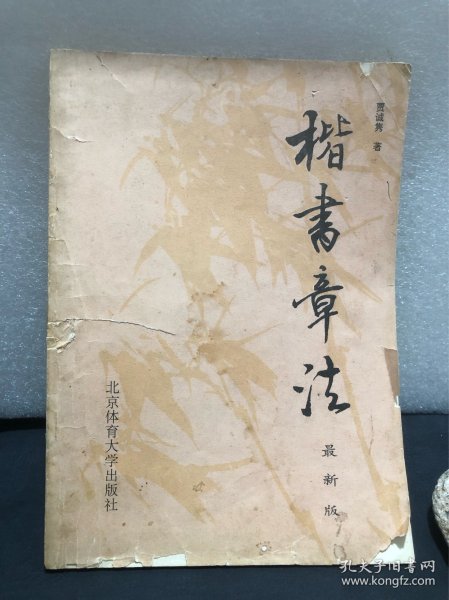 贾诚隽 著
楷书章法
最新版
北京体育大学出版社
孔夫子旧书网
www.kongfz.com